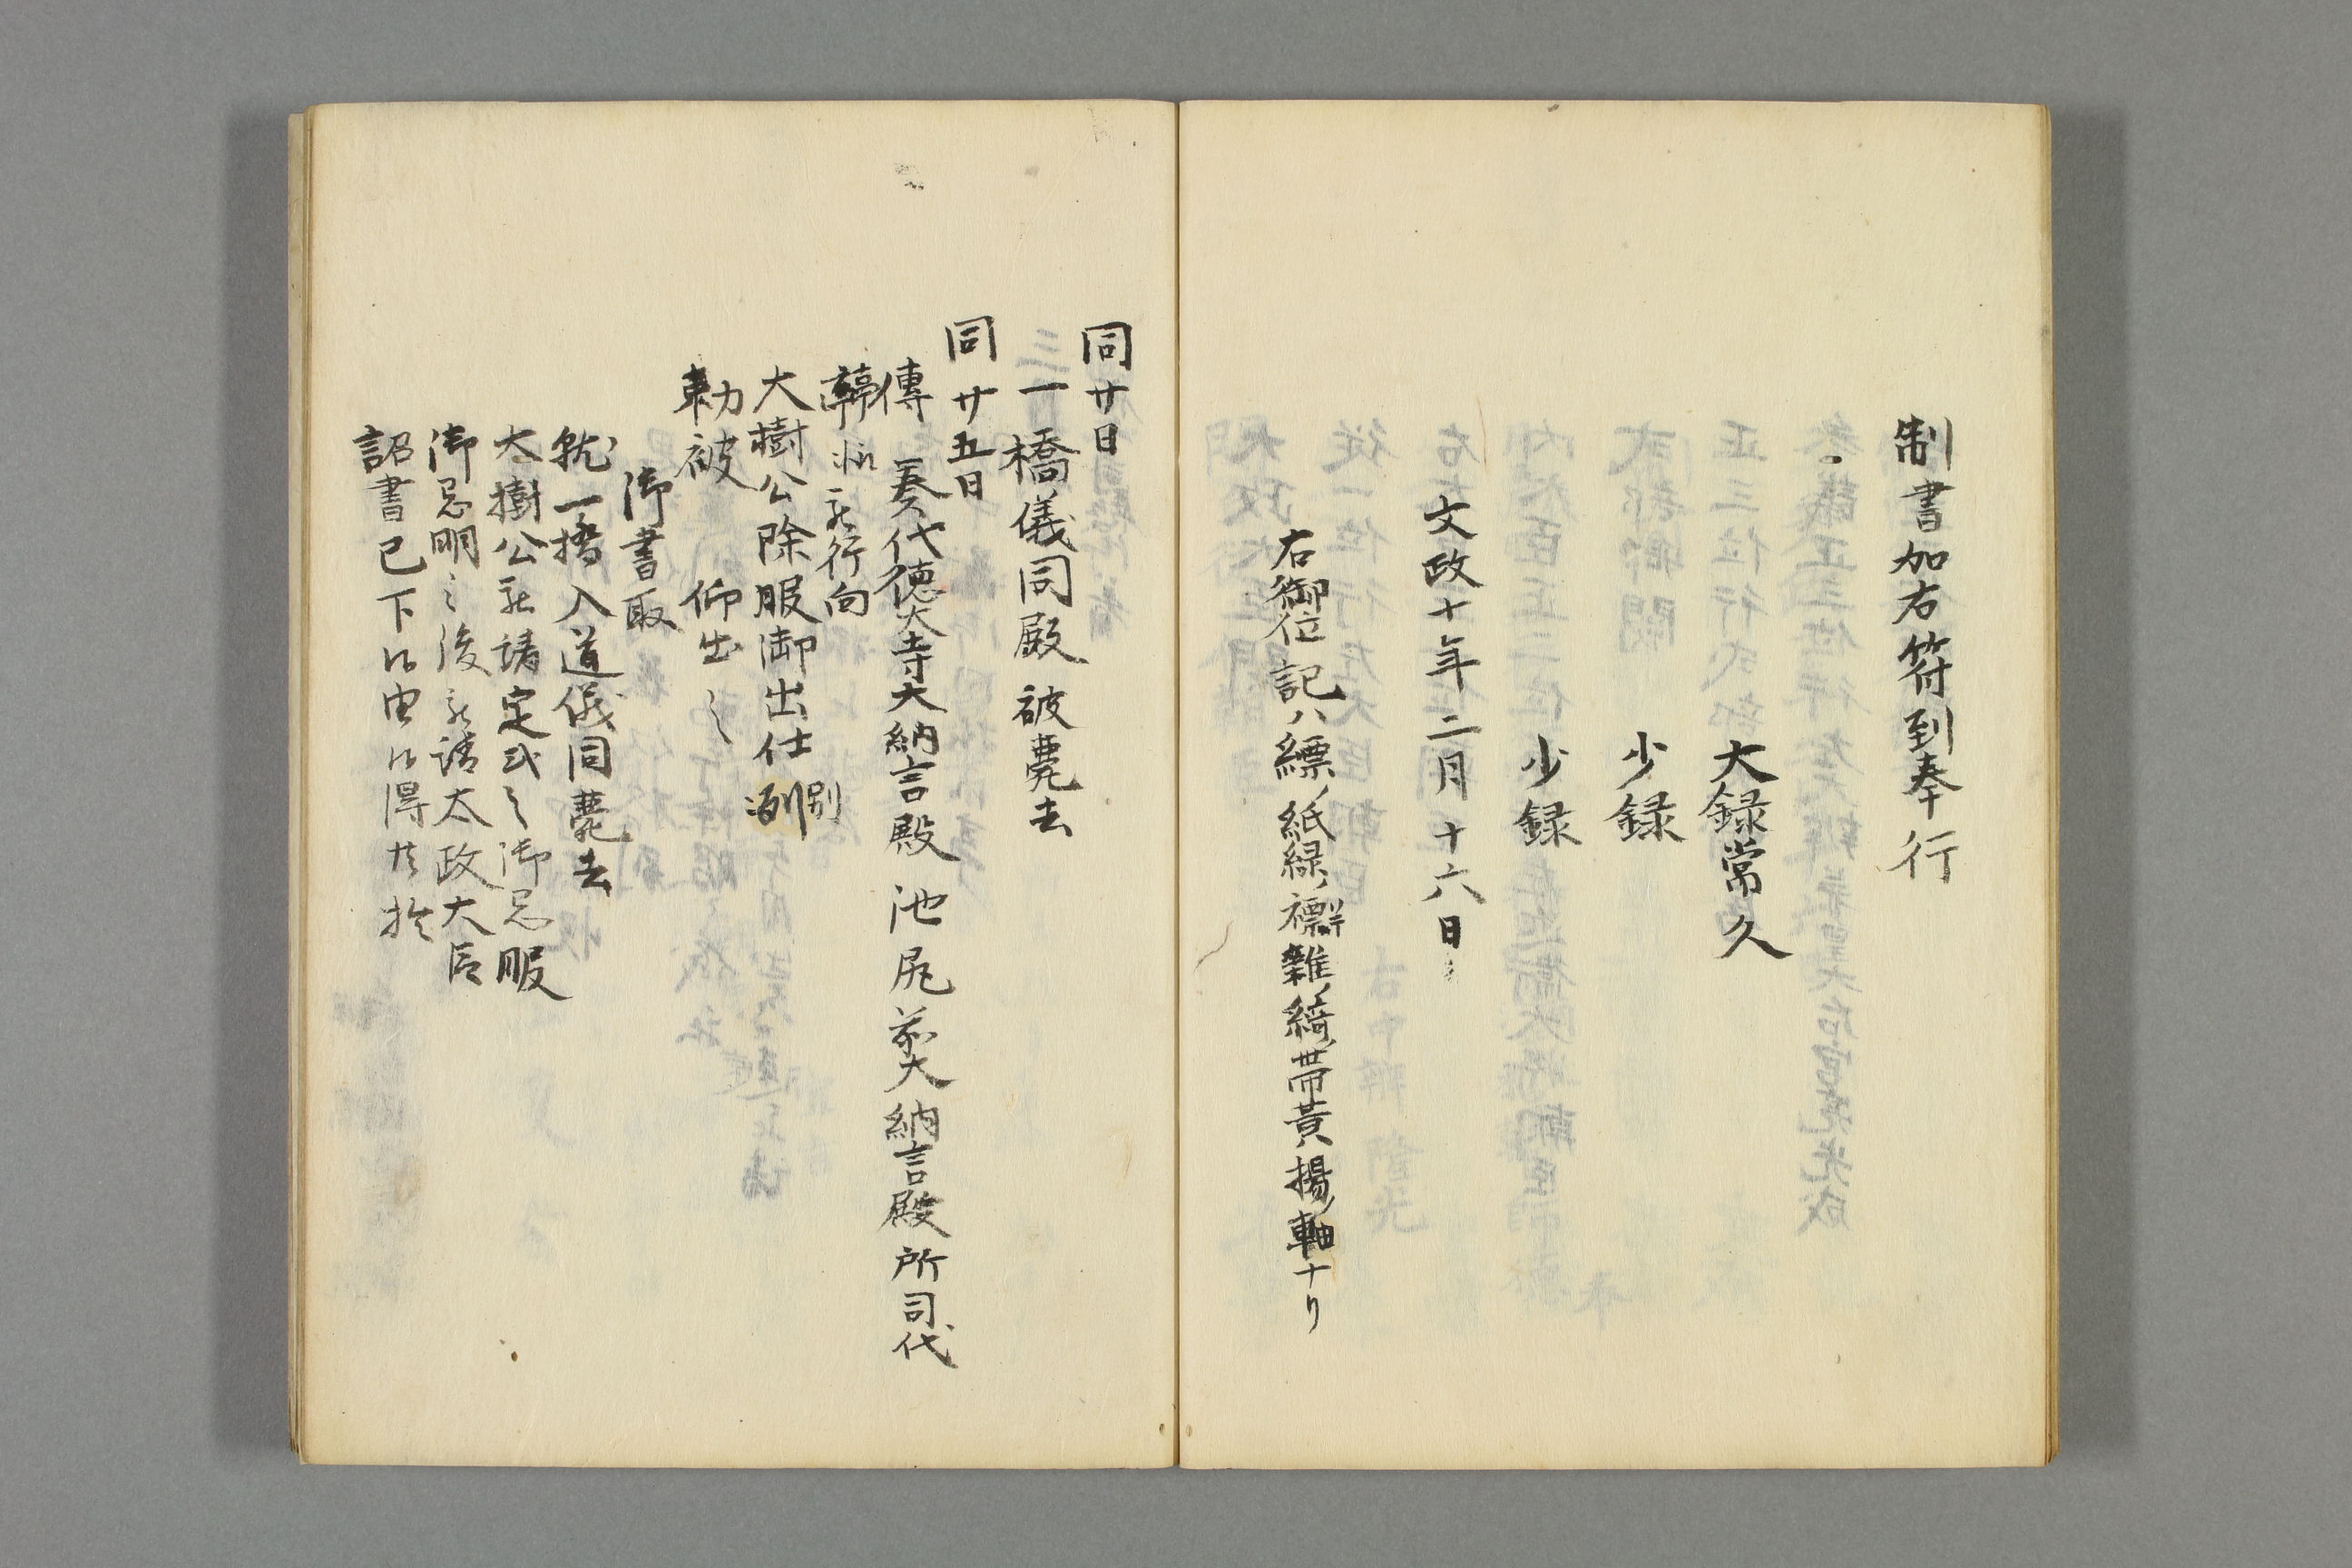 制書加右符到奉行
大録常久
少録
少録
文政十年二月十六日
右御位記ハ縹ノ紙緑ノ褾雑ノ綺ノ帯黄楊ノ軸ナリ
同廿日
一橋儀同殿被薨去
同廿五日
傳奏代徳大寺大納言殿池尻前大納言殿所司代
亭行向
大樹公除服御出仕別
勅被仰出之
御書取
就一橋入道儀同薨去
大樹公被請定式之御忌服
御忌明之後被請太政大臣
詔書已下